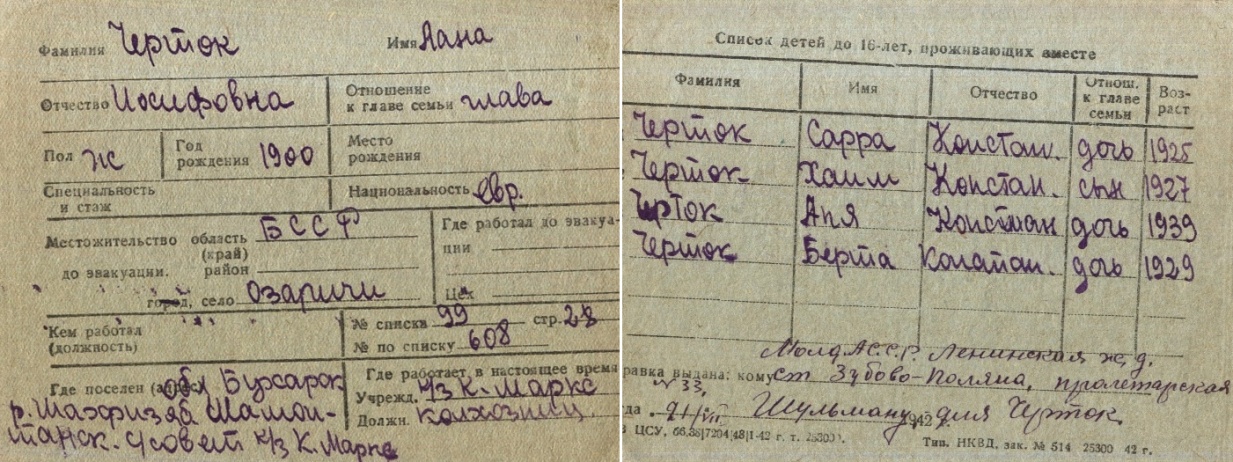 Фамилия Черток Имя Лана
Отчество Иосифовна Отношение к главе семьи глава
Пол ж Год рождения 1900 Место рождения
Специальность и стаж Национальность евр.
Местожительство до эвакуации. область (край) БССР Где работал до эвакуа-
район ции
город, село Озаричи Цех
Кем работал (должность) № списка 99 стр. 28
№ по списку 608
Где поселен Где работает в настоящее время
Учрежд. к/з К. Маркс
Должн. колхозниц
к/з К. Маркс
Список детей до 16-лет, проживающих вместе
Фамилия Имя Отчество Отнош. к главе семьи Воз-раст
Черток Сарра Констан. дочь 1925
Черток Хаим Констан. сын 1927
Черток Аня Констан дочь 1939
Черток Берта Констан. дочь 1929
А.С.С.Р. Ленинская ж. д.
равка выдана: кому ст Зубово-Поляна, пролетарская
№ 33,
да Шульману для Черток 1942
ЦСУ, Тип. НКВД, зак. № 514 25300 42 г.